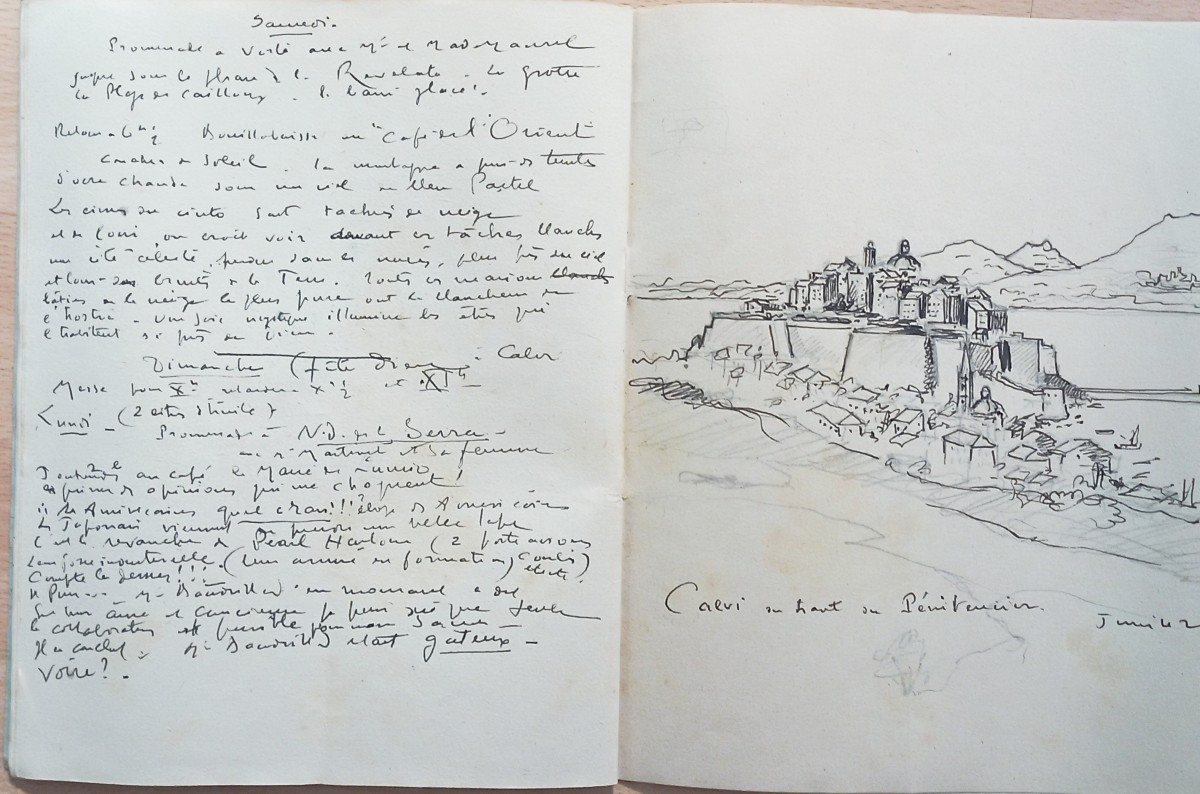 Samedi.
Promenade a vélo avec Mr et Mad Maurel
jusque sous le phare de la Revelata. La grotte
la Plage de cailloux. l. bain glacé!
Retour a 6h ½ Bouillabaisse au "Café de l'Orient"
coucher de Soleil. la montagne a pris des teintes
d'ocre chaude sous un ciel de bleu Pastel
Les cimes du cinto sont tachés de neige
et de loin, on croit voir devant ces tâches blanches
une cité céleste, perdue dans les nuées, plus près du ciel
et loin des bruits de la Terre. Toutes ces maisons blanch
bâties de la neige la plus pure ont la blancheur de
l'hostie. Une joie mystique illumine les êtres qui
l'habitent si près de Dieu.
Dimanche (fête à Calvi
Messe pour Xh ½ et XIh
Lundi - (2 litres d'huile)
Promenade à N.D. de la Serra -
Mr Martinet et sa femme
J'entends au café le Maire de Lumio,
opinions qui me choquent!
les Américains quel cran!!! éloge des Américains
Les Japonais viennent prendre une belle tape
C'est la revanche de Pearl Harbour (2 porte avions
Leur force inventorielle. (leur armée en formation)
Compte le dernier!!!
Mr Baudrillard en mourant a dit
Sur mon âme et conscience je puis dire que seule
la collaboration est possible pour nous
Il a conclu: Mr Baudrillard était gateux -
Voire? -
Calvi du haut du Pénitencier.
Juin 42